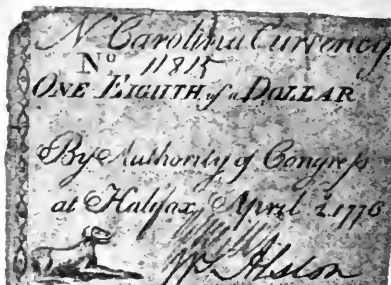 N. Carolina Currency
No 11815
ONE EIGHTH of a DOLLAR
By Authority of Congress
at Halifax, April 2. 1776
Alston